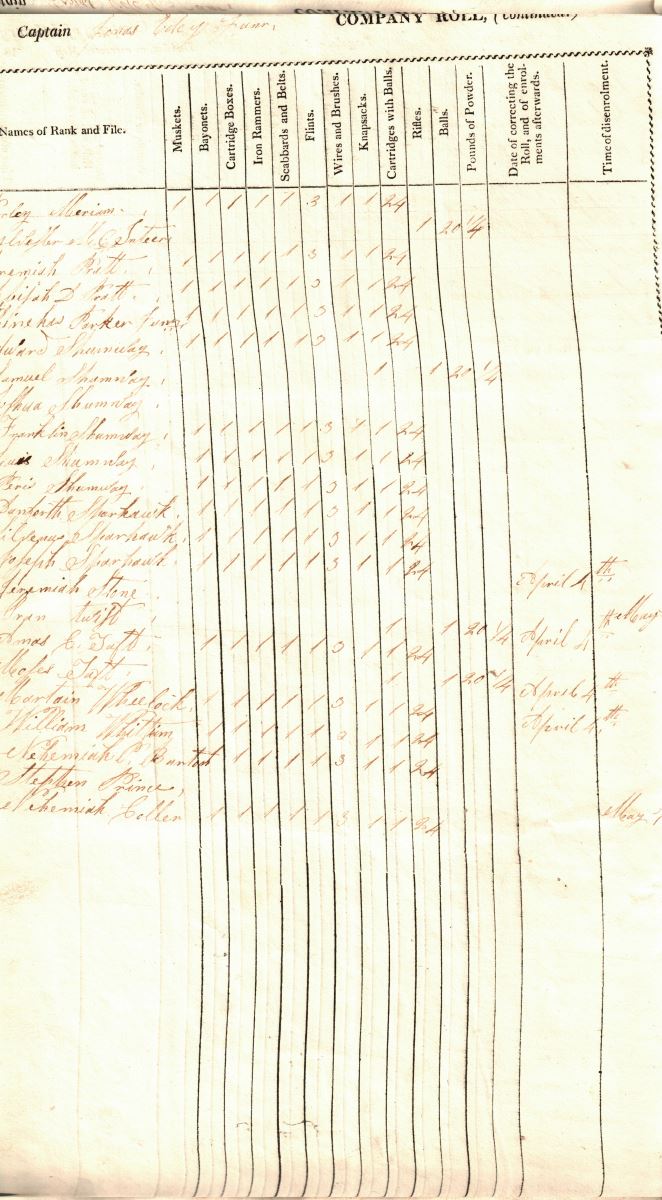 COMPANY ROLL, (continued.)
Captain Jonas
Names of Rank and File.
Muskets.
Bayonets.
Cartridge Boxes.
Iron Rammers.
Scabbards and Belts.
Flints.
Wires and Brushes.
Knapsacks.
Cartridges with Balls.
Rifles.
Balls.
Pounds of Powder.
Date of correcting the Roll, and of enrolments afterwards.
Time of disenrolment.
Meriam 1 1 1 1 1 3 1 1 24
1 20 1/4
remiah Pratt 1 1 1 1 1 3 1 1 24
D Pratt 1 1 1 1 1 3 1 1 24
Parker 1 1 1 1 1 3 1 1 24
ward Shumway 1 1 1 1 1 3 1 1 24
amuel Shumway 1 1 20 1/4
shua Shumway
Franklin Shumway 1 1 1 1 1 3 1 1 24
Shumway 1 1 1 1 1 3 1 1 24
Shumway 1 1 1 1 1 3 1 1 24
Danforth Sparhawk 1 1 1 1 1 3 1 1 24
Sparhawk 1 1 1 1 1 3 1 1 24
Joseph Sparhawk 1 1 1 1 1 3 1 1 24
Jeremiah Stone April 4th
Twist 1 1 20 1/4 April 4th May
Amos E. Taft 1 1 1 1 1 3 1 1 24
Moses Taft 1 1 20 1/4 April 4th
Martain Wheelock 1 1 1 1 1 3 1 1 24 April 4th
William 1 1 1 1 1 3 1 1 24
Nehemiah 1 1 1 1 3 1 1 24
Stephen Prince
Nehemiah Coller 1 1 1 1 1 3 1 1 24 May